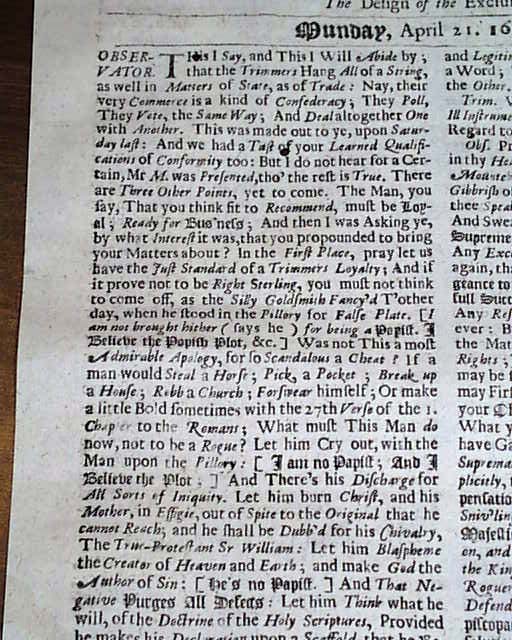 The Design of the Exclu
Munday, April 21. 16
OBSER- THis I Say, and This I Will Abide by;
VATOR. that the Trimmers Hang All of a String,
as well in Matters of State, as of Trade: Nay, their
very Commerce is a kind of Confederacy; They Poll,
They Vote, the Same Way; And Deal altogether One
with Another. This was made out to ye, upon Satur-
day last: And we had a Tast of your Learned Qualifi-
cations of Conformity too: But I do not hear for a Cer-
tain, Mr M. was Presented, tho' the rest is True. There
are Three Other Points, yet to come. The Man, you
say, That you think fit to Recommend, must be Loy-
al; Ready for Bus'ness; And then I was Asking ye,
by what Interest it was, that you propounded to bring
your Matters about? In the First Place, pray let us
have the Just Standard of a Trimmers Loyalty; And if
it prove not to be Right Sterling, you must not think
to come off, as the Silly Goldsmith Fancy'd T'other
day, when he stood in the Pillory for False Plate. [I
am not brought hither (says he) for being a Papist. I
Believe the Popish Plot, &c.] Was not This a most
Admirable Apology, for so Scandalous a Cheat? If a
man would Steal a Horse; Pick a Pocket; Break up
a House; Robb a Church; Forswear himself; Or make
a little Bold sometimes with the 27th Verse of the 1.
Chapter to the Romans; What must This Man do
now, not to be a Rogue? Let him Cry out, with the
Man upon the Pillory: [I am no Papist; And I
Believe the Plot:] And There's his Discharge for
All Sorts of Iniquity. Let him burn Christ, and his
Mother, in Effigie, out of Spite to the Original that he
cannot Reach; and he shall be Dubb'd for his Chivalry,
The True-Protestant Sr William: Let him Blaspheme
the Creator of Heaven and Earth; and make God the
Author of Sin: [He's no Papist.] And That Ne-
gative Purges All Defects: Let him Think what he
will, of the Doctrine of the Holy Scriptures, Provided
he makes his Declaration upon a Scaffold, that he
and Legitim
a Word;
the Other.
Trim. V
Ill Instrume
Regard to
Obs. Pr
in thy He
Mounte
Gibbrish o
thee Speak
And Swea
Supreme
Any Exc
again, tha
geance to
full Succ
Any Ref
ever: B
the Mat
Rights;
may be f
may Firf
your Ch
What y
have Ga
Suprema
plicitly,
pensatio
Sniv'lin
Majesti
on, and
the Kin
Roguer
Defend
piscopa